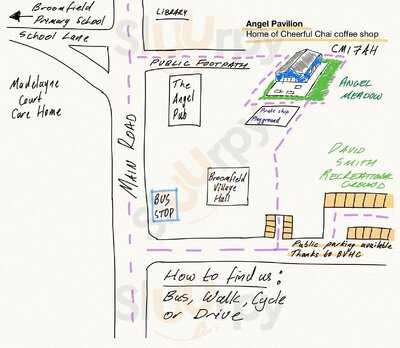 Broomfield
Primary School
School Lane
LIBRARY
Angel Pavilion
Home of Cheerful Chai coffee shop
CM17AH
PUBLIC FOOTPATH
Madelayne
Court
Care Home
The
Angel
Pub
Pirate ship
Playground
ANGEL
MEADOW
MAIN ROAD
DAVID
SMITH
RECREATIONAL
GROUND
BUS
STOP
Broomfield
Village
Hall
Public parking available
Thanks to BVHC
How to find us:
Bus, Walk, Cycle
or Drive
Sluurpy
Sluurpy